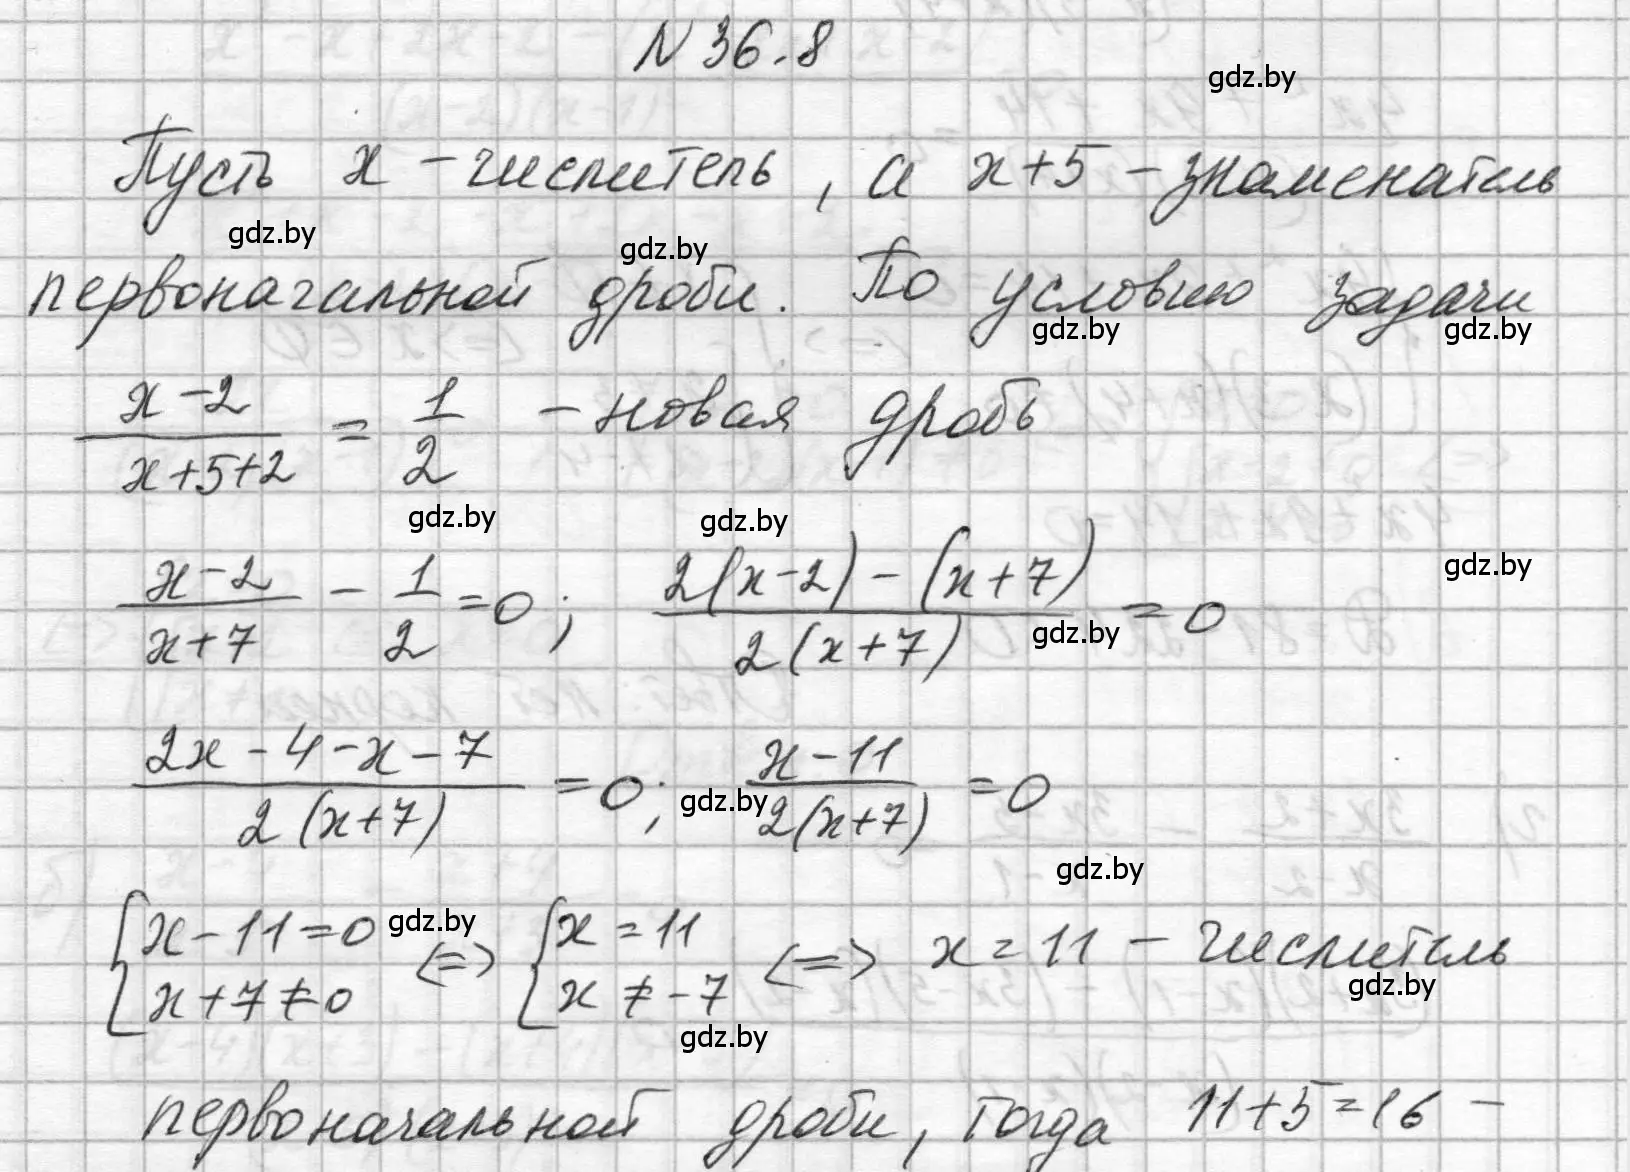 N 36.8
gdz.by
Пусть x – числитель, а x+5 – знаменатель
gdz.by gdz.by
первоначальной дроби. По условию задачи
gdz.by gdz.by
(x-2)/(x+5+2) = 1/2 – новая дробь
gdz.by gdz.by
(x-2)/(x+7) - 1/2 = 0; (2(x-2)-(x+7))/(2(x+7)) = 0
gdz.by gdz.by
(2x-4-x-7)/(2(x+7)) = 0; (x-11)/(2(x+7)) = 0
gdz.by gdz.by
{x-11=0 {x=11
{x+7≠0 <=> {x≠-7 <=> x=11 – числитель
gdz.by gdz.by gdz.by
первоначальной дроби, тогда 11+5=16 –